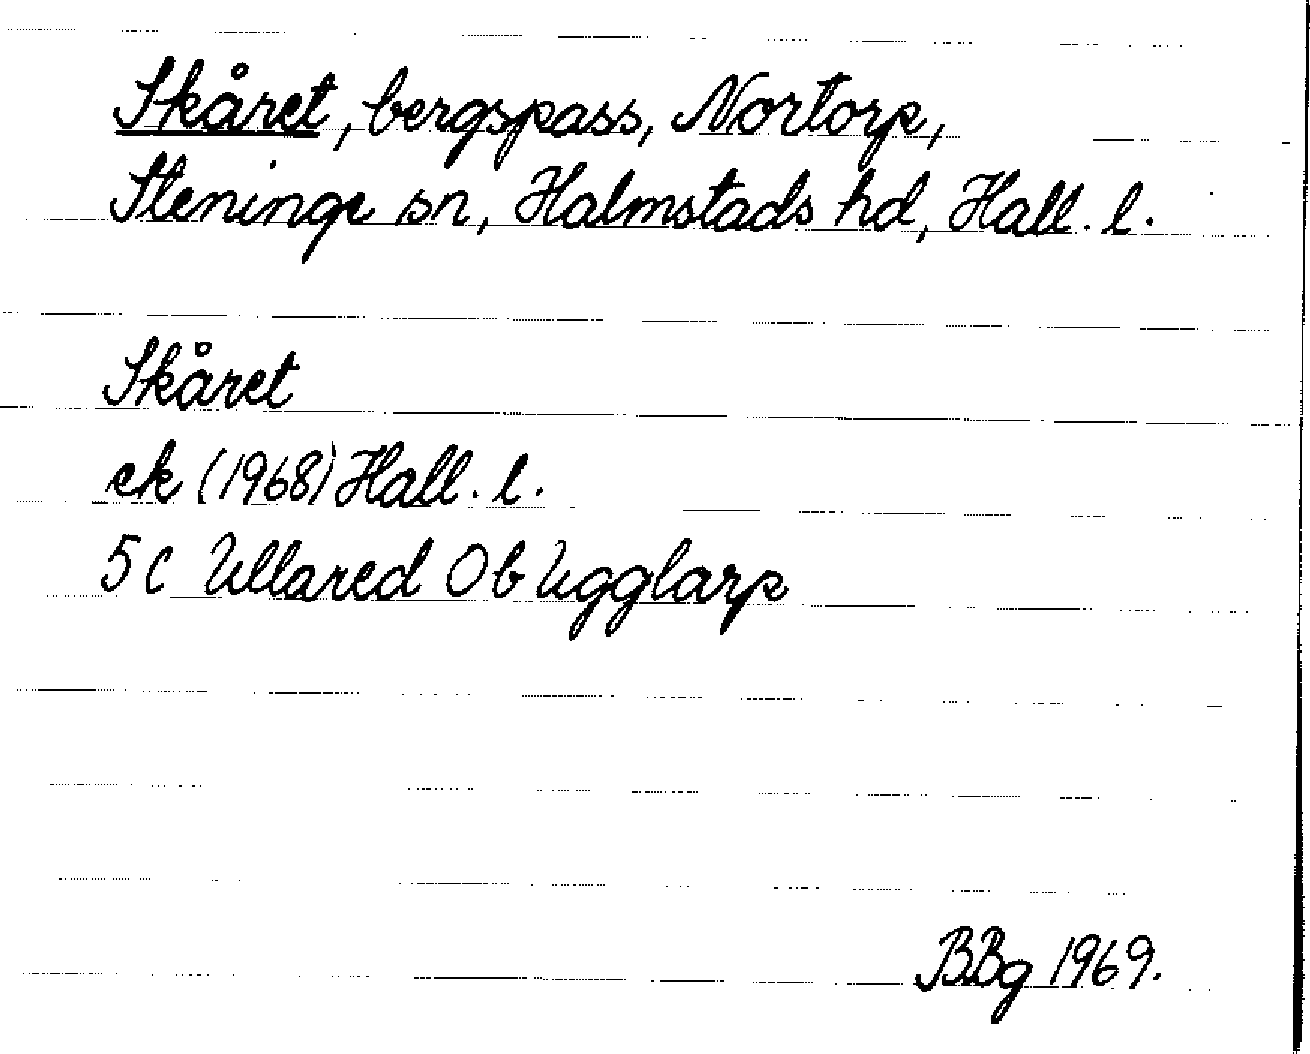 Skåret, bergspass, Nortorp,
Steninge sn, Halmstads hd, Hall. l.
Skåret
ek (1968) Hall. l.
5C Ullared Ob Ugglarp
BBg 1969.